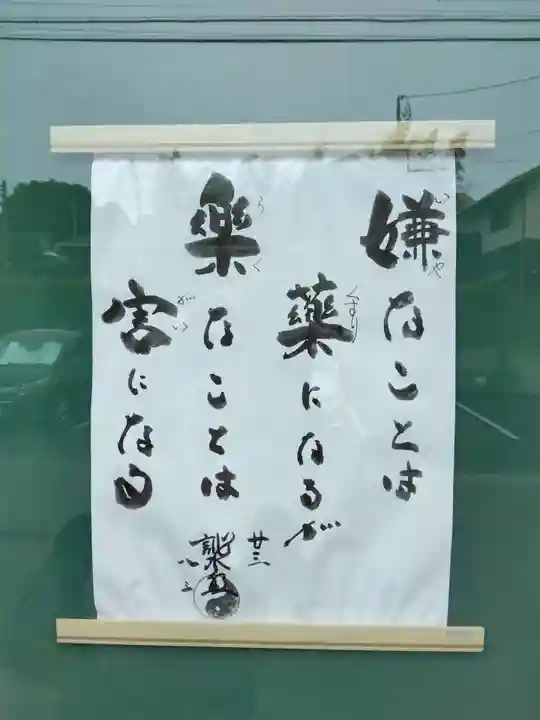 嫌なことは
いや
薬になるが
くすり
楽なことは
らく
害になる
がい
廿三
八三